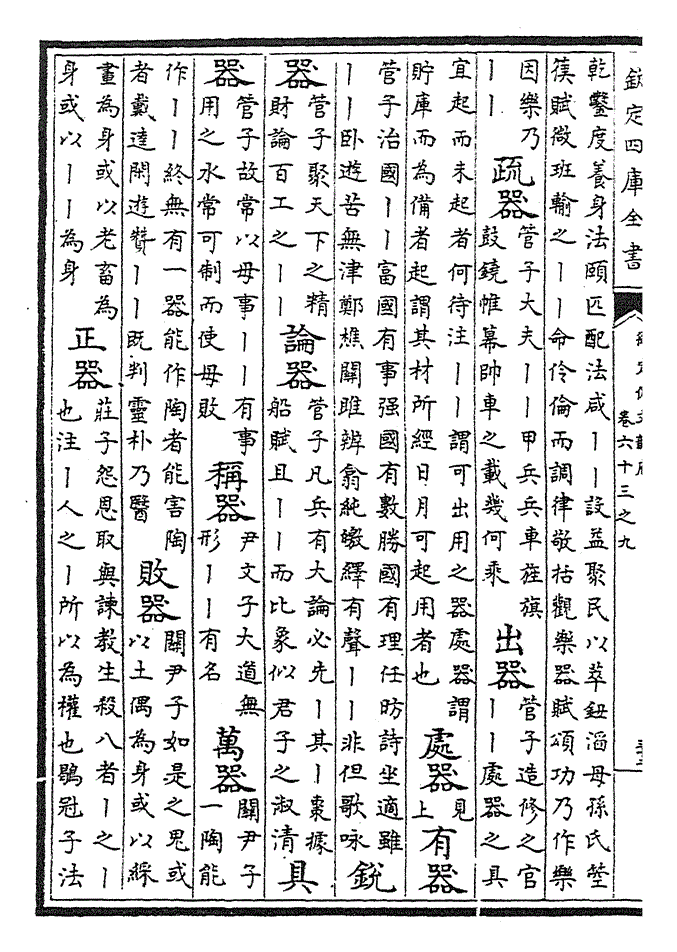 欽定四庫全書
卷六十三之九
乾鑿度養身法頤匹配法咸丨丨設益聚民以萃鈕滔母孫氏箜
篌賦微班輸之丨丨命伶倫而調律敬括觀樂器賦頌功乃作樂
因樂乃
丨丨
疏器
管子大夫丨丨甲兵兵車旌旗
鼓鐃帷幕帥車之載幾何乘
出器
管子造修之官
丨丨處器之具
宜起而未起者何待注丨丨謂可出用之器處器謂
貯庫而為備者起謂其材所經日月可起用者也
處器
見
上
有器
管子治國丨丨富國有事强國有數勝國有理任昉詩坐適雖
丨丨卧遊苦無津鄭樵關雎辨翕純皦繹有聲丨丨非但歌咏
銳
器
管子聚天下之精
財論百工之丨丨
論器
管子凡兵有大論必先丨其丨棗據
船賦且丨丨而比象似君子之淑清
具
器
管子故常以毋事丨丨有事
用之水常可制而使毋敗
稱器
尹文子大道無
形丨丨有名
萬器
關尹子
一陶能
作丨丨終無有一器能作陶者能害陶
者戴逵閒遊贊丨丨既判靈朴乃醫
敗器
關尹子如是之鬼或
以土偶為身或以綵
畫為身或以老畜為
身或以丨丨為身
正器
莊子怨恩取與諫教生殺八者丨之丨
也注丨人之丨所以為權也鶡冠子法